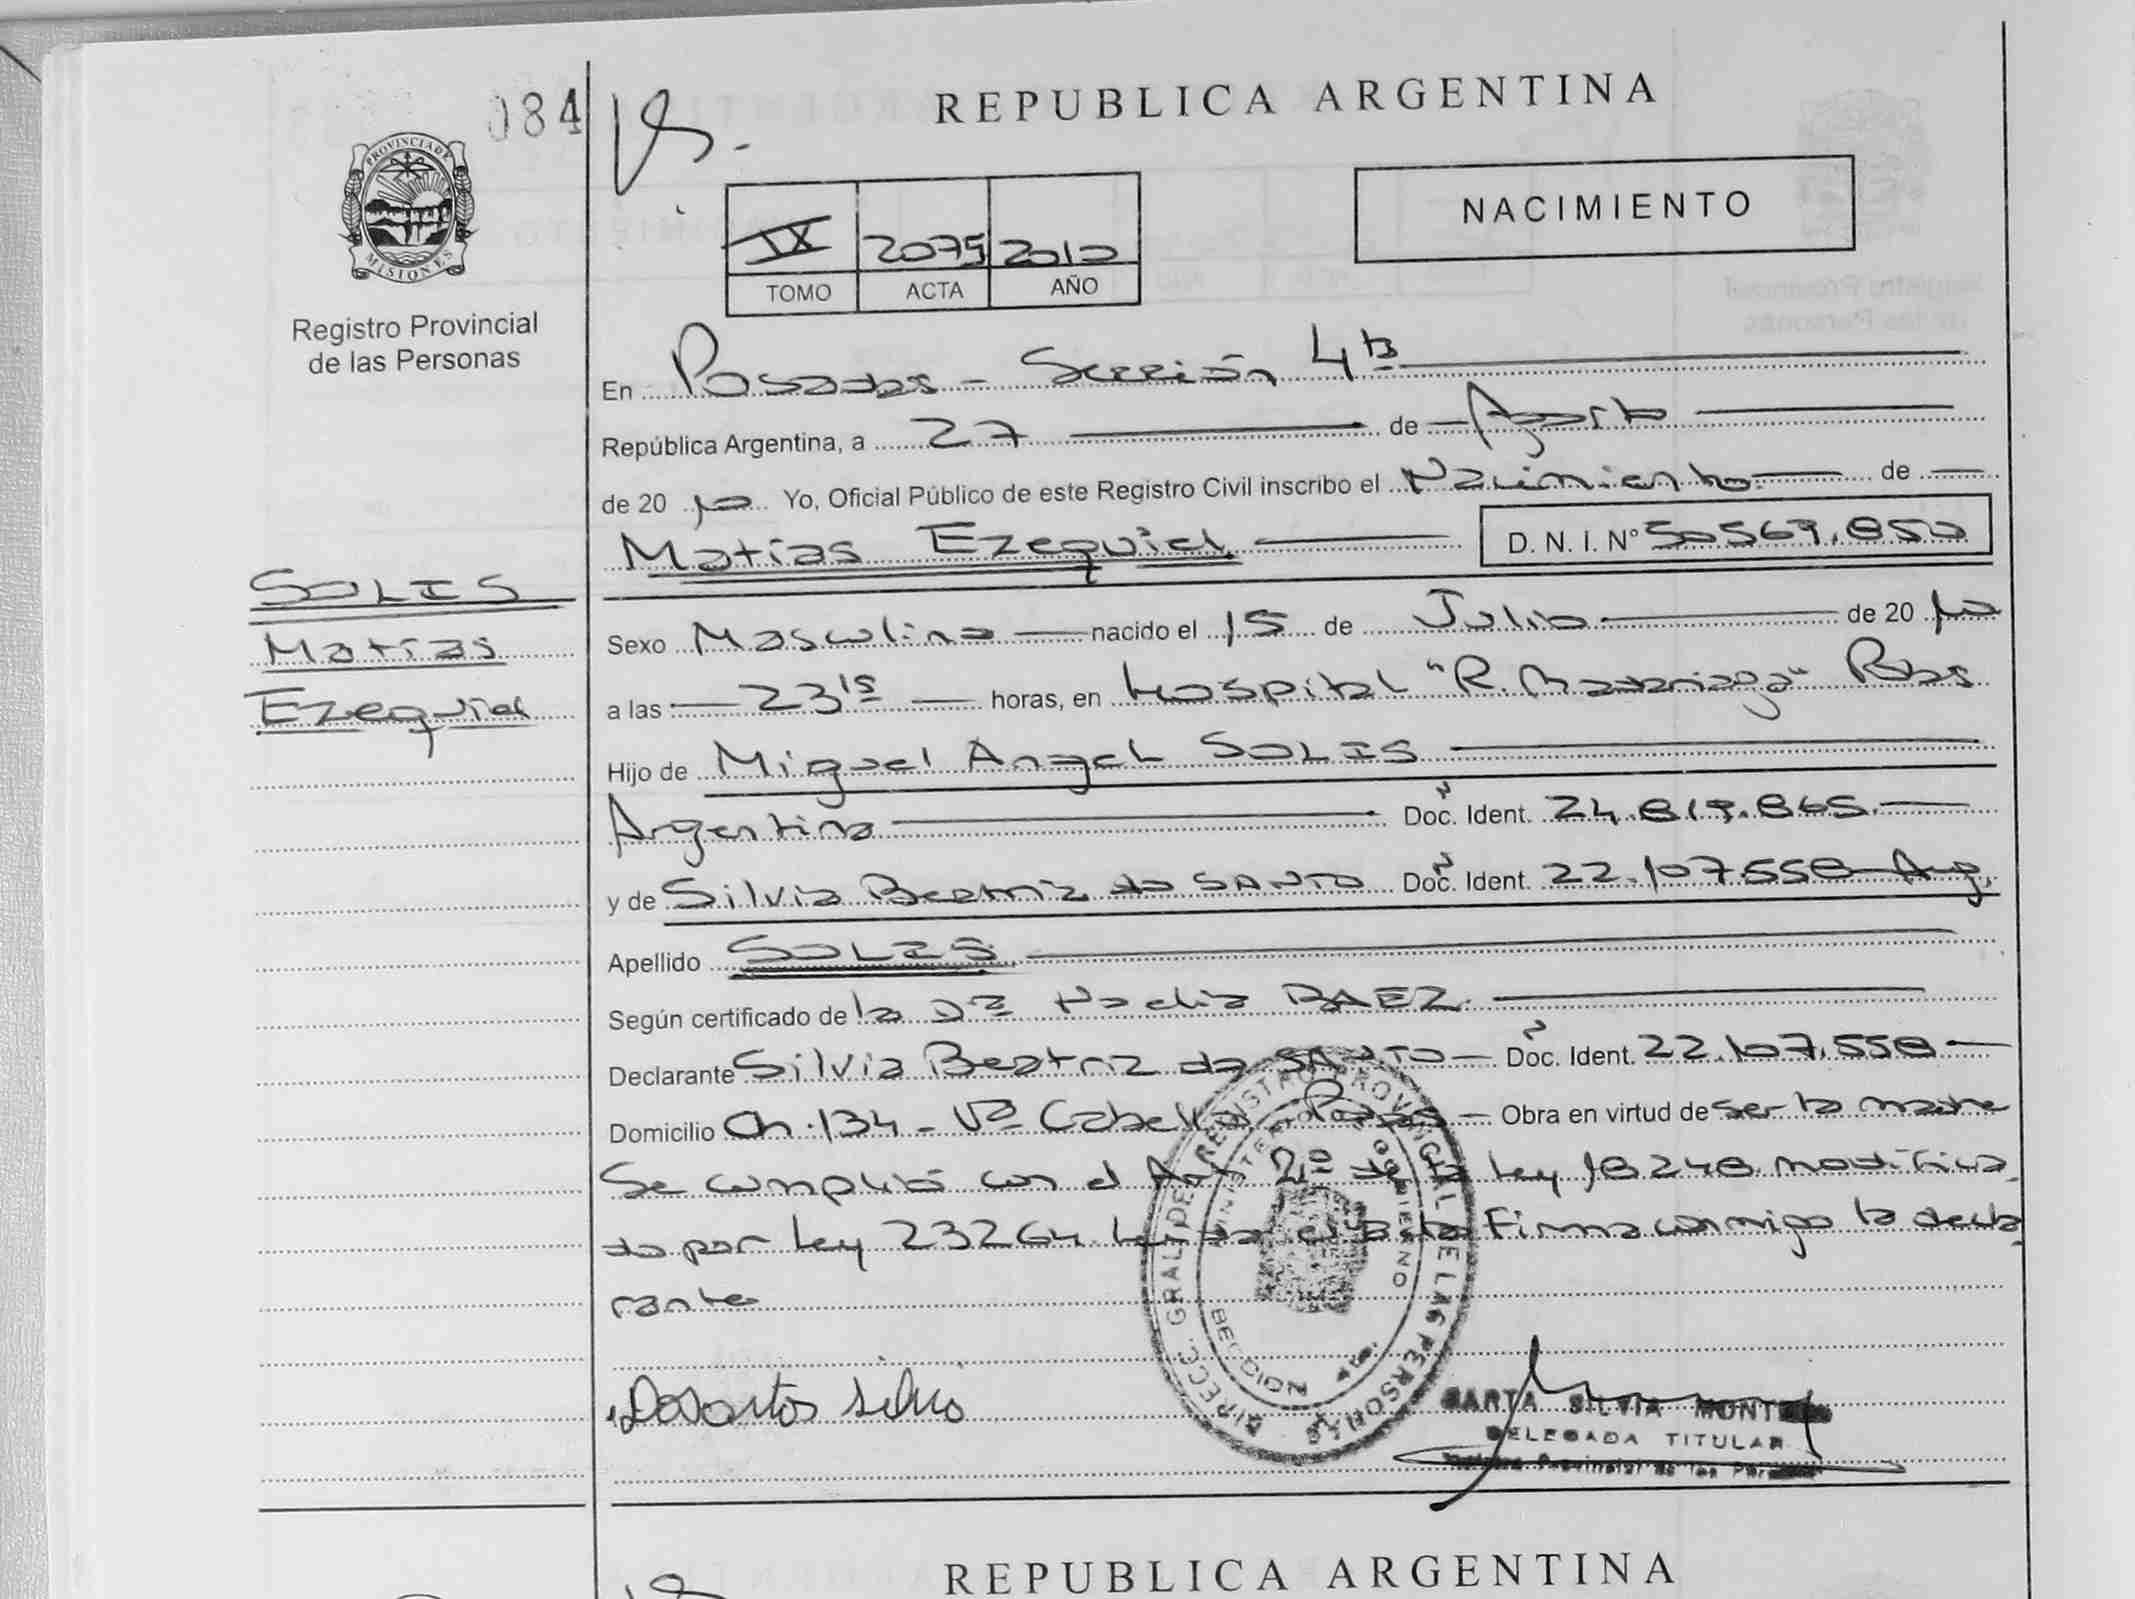 084
REPUBLICA ARGENTINA
PROVINCIA DE
MISIONES
Registro Provincial
de las Personas
IX 2075 2010
TOMO ACTA AÑO
NACIMIENTO
En Posadas - Sección 4ta
República Argentina, a 27 de Agosto
de 20 10 Yo, Oficial Público de este Registro Civil inscribo el Nacimiento de
Matías Ezequiel D. N. I. Nº 50569.850
SOLIS
Matías
Ezequiel
Sexo Masculino nacido el 15 de Julio de 20 10
a las 23 15 horas, en Hospital "R. Madariaga" Pdas
Hijo de Miguel Angel SOLIS
Argentina Doc. Ident. 24.819.865
y de Silvia Beatriz do SANTO Doc. Ident. 22.107.558 Arg.
Apellido SOLIS
Según certificado de la Dra Nadia BAEZ
Declarante Silvia Beatriz do SANTO Doc. Ident. 22.107.558
Domicilio Ch. 134 - Vª Cabello Pdas Obra en virtud de ser la madre
Se cumplió con el Art 2º de la Ley 18248 modifica
do por Ley 23264 el Firma conmigo la decla
rante
DIRECC. GRAL. DE REGISTRO PROVINCIAL DE LAS PERSONAS
MINISTERIO GOBIERNO
SECCION 4ta.
Dosantos Silvia
SILVIA
DELEGADA TITULAR
Registro Provincial de las Personas
REPUBLICA ARGENTINA